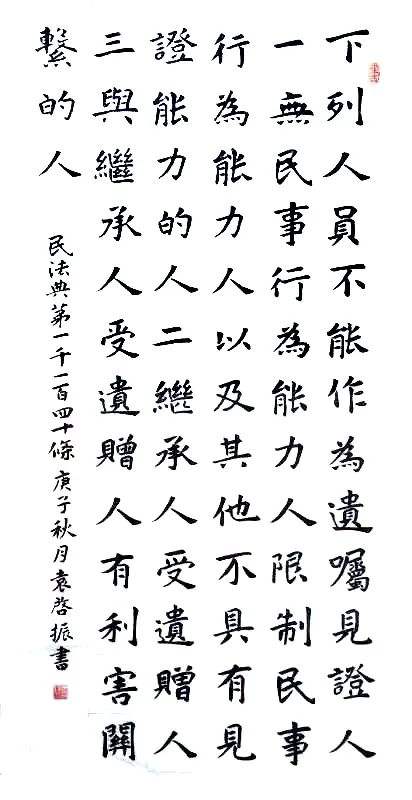 下列人員不能作為遺囑見證人
一無民事行為能力人限制民事
行為能力人以及其他不具有見
證能力的人二繼承人受遺贈人
三與繼承人受遺贈人有利害關
繫的人
民法典第一千一百四十條 庚子秋月袁啓振書